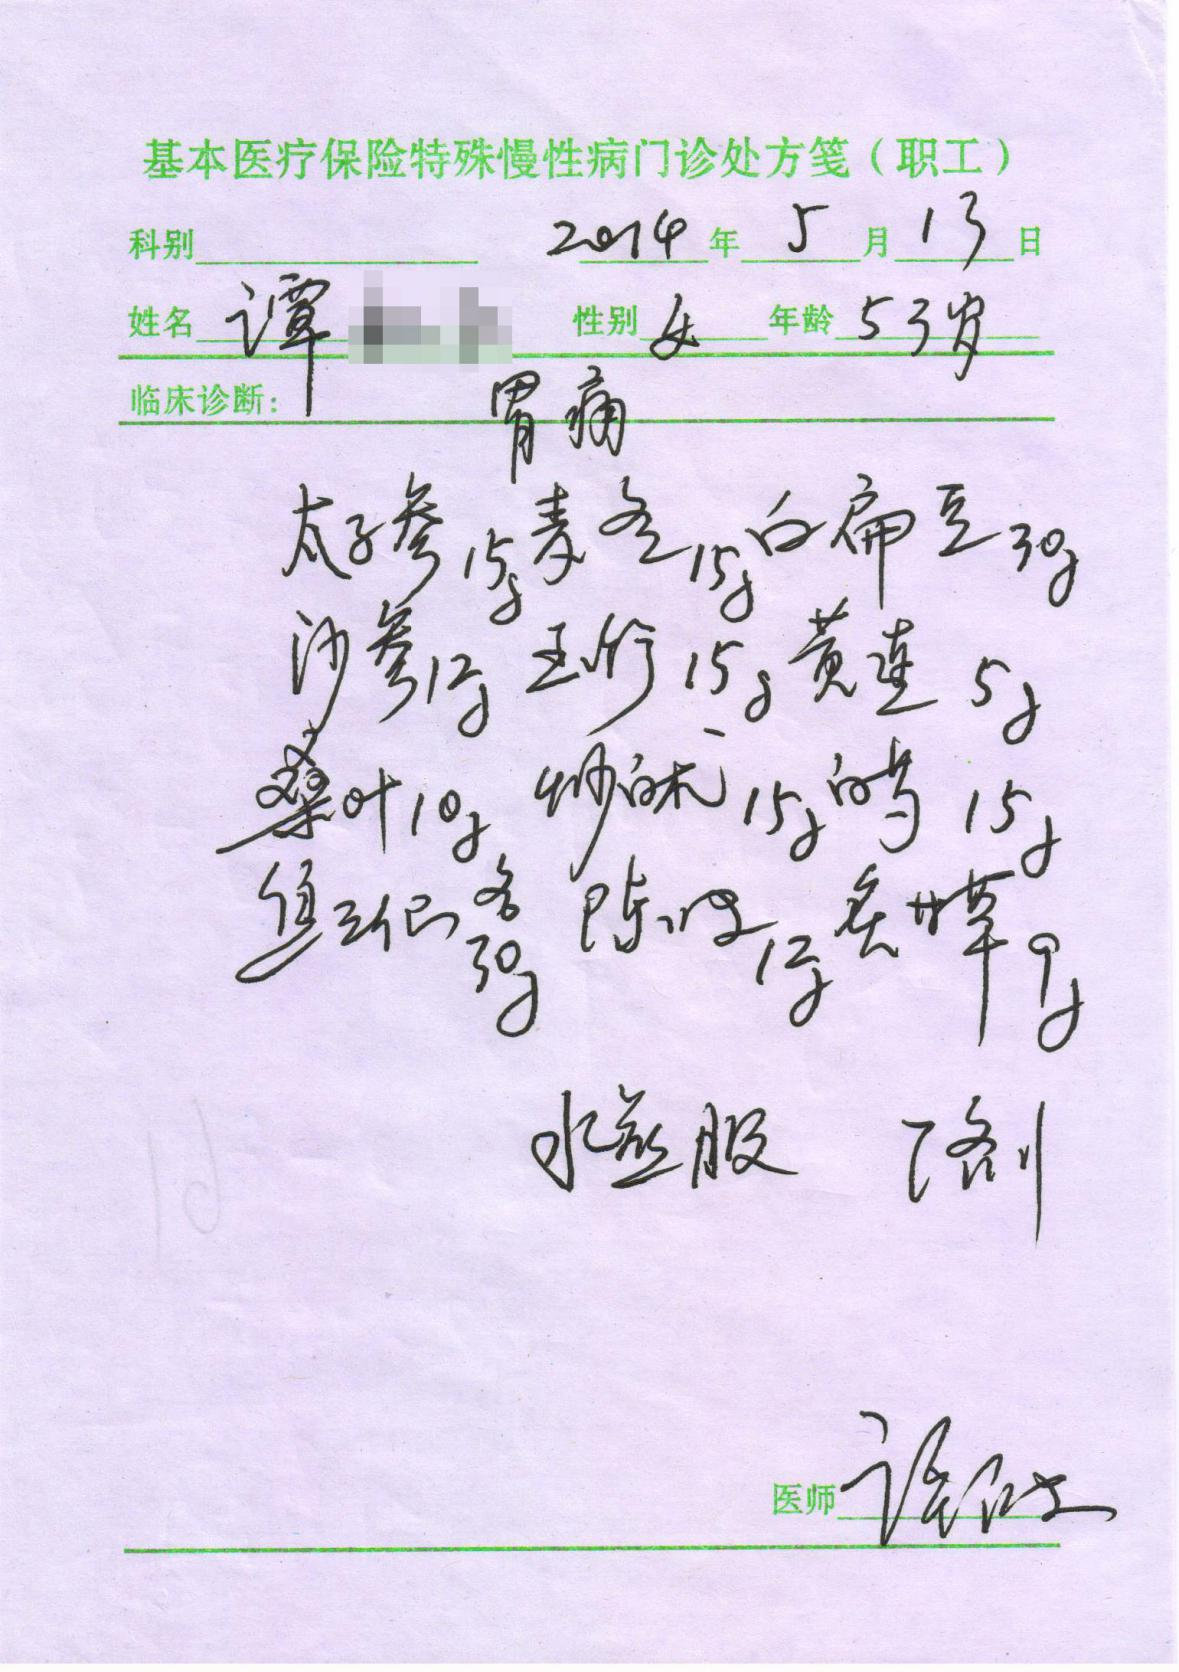 基本医疗保险特殊慢性病门诊处方笺（职工）
科别 2014年5月13日
姓名 谭 性别 女 年龄 53岁
临床诊断: 胃痛
太子参15g 麦冬15g 白扁豆30g
沙参12g 玉竹15g 黄连5g
桑叶10g 炒白术15g 白芍15g
焦三仙各30g 陈皮12g 炙甘草9g
水煎服 剂
医师